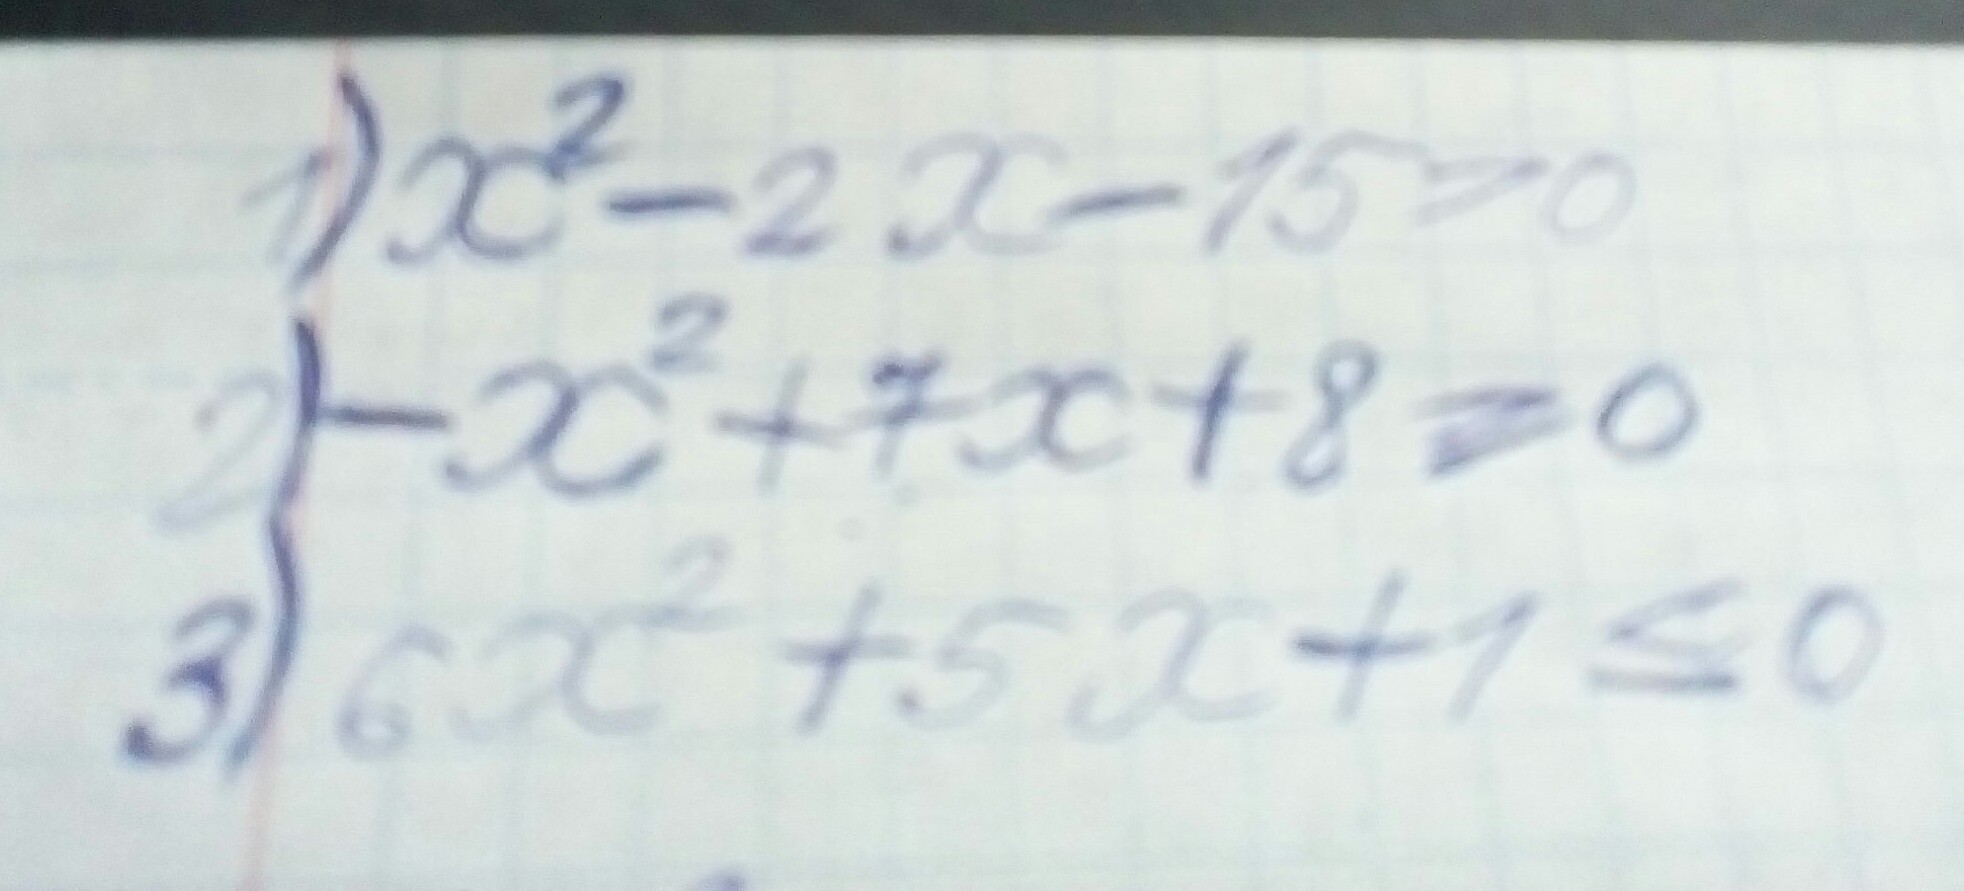 1) x² - 2x - 15 > 0
2) - x² + 7x + 8 ≥ 0
3) 6x² + 5x + 1 ≤ 0